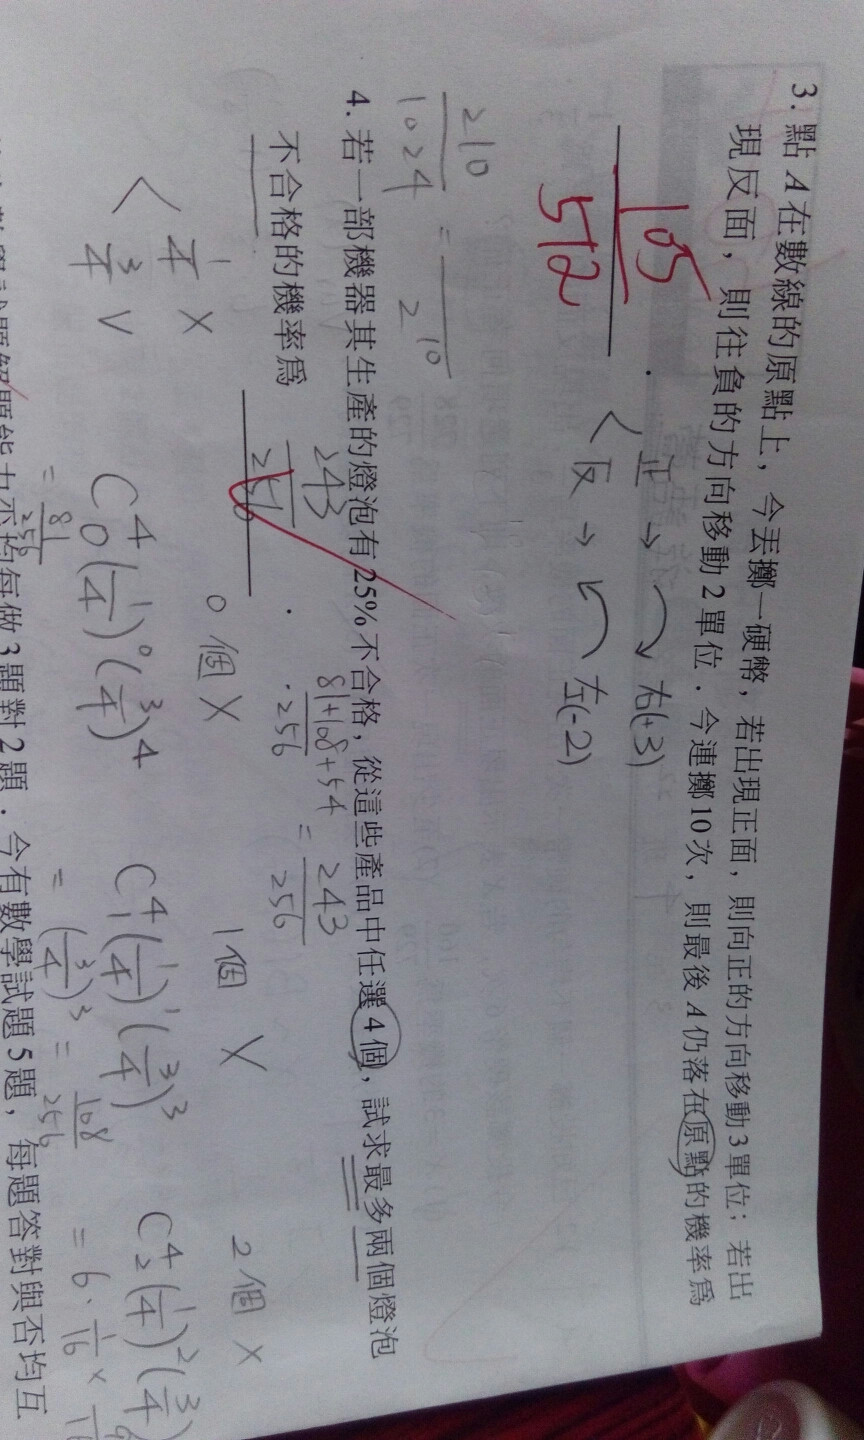 3. 點 A 在數線的原點上,今丟擲一硬幣,若出現正面,則向正的方向移動3單位;若出
現反面,則往負的方向移動2單位.今連擲10次,則最後 A 仍落在原點的機率為
105/512 .
正 → 右(+3)
反 → 左(-2)
210/1024 = /2^10
4. 若一部機器其生產的燈泡有25%不合格,從這些產品中任選4個,試求最多兩個燈泡
不合格的機率為 243/256 .
(81+108+54)/256 = 243/256
1/4 X
3/4 V
0個X
1個 X
2個 X
C^4_0 (1/4)^0 (3/4)^4
= 81/256
C^4_1 (1/4)^1 (3/4)^3
= (3/4)^3 = 108/256
C^4_2 (1/4)^2 (3/4)
= 6 · 1/16 ×
題能力平均每做3題對2題.今有數學試題5題,每題答對與否均互